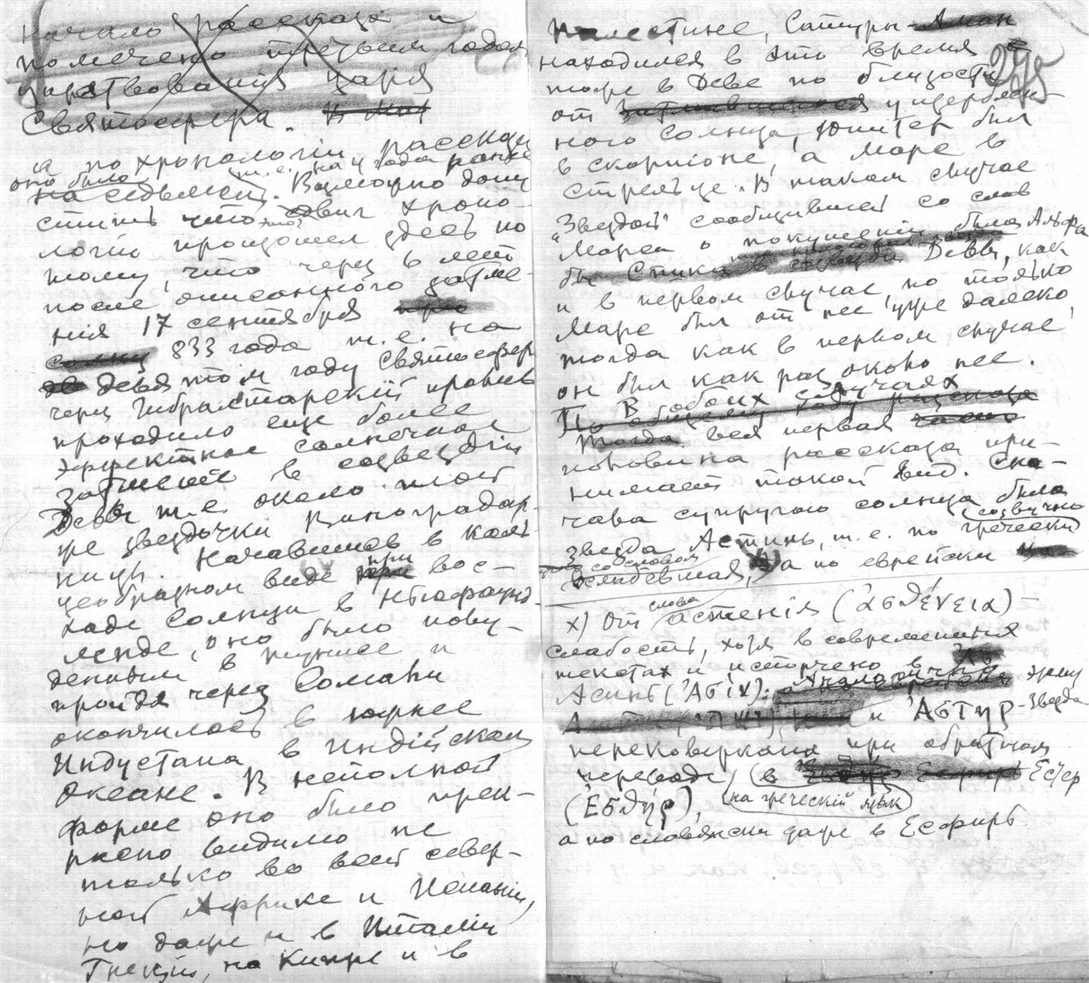 начало рассказа и
помечено третьим годом
царствования царя
Святосфера.
а по хронологии рассказа
оно было т.е. на 4 года ранее
на седьмом. Возможно допу
стить, что этот сдвиг хроно-
логии произошел здесь по
тому, что через 6 лет
после описанного затме-
ния 17 сентября
833 года т.е. на
девятом году Святосфера
через Гибралтарский пролив
проходило еще более
эффектное солнечное
затмение в созвездии
Девы т.е. около той
же звездочки Виноградар-
ницы. Начавшись в коль
цеобразном виде при вос-
ходе Солнца в Нью-Фаунд-
ленде, оно было
в Тунисе и
пройдя через Сомали
окончилось в южнее
Индустана в Индийском
океане. В неполной
форме оно было прек-
расно видимо не
только во всей север-
ной Африке и Испании,
но даже и в Италии
Греции, на Кипре и в
295
Палестине, Сатурн-Аман
находился в это время
тоже в Деве по близости
от ущербен-
ного солнца, Юпитер был
в скорпионе, а Марс в
стрельце. В таком случае
"Звездой" сообщившей со слов
Марса о покушении была Альфа
Девы, как
и в первом случае, но только
Марс был от нее уже далеко,
тогда как в первом случае
он был как раз около нее.
В обоих случаях
Тогда вся первая
половина рассказа при-
нимает такой вид. Сна-
чала супругою солнца была
звезда Астинь, т.е. по гречески
созвучно со словом
Ослабевшая, x) а по еврейски
x) От слова астенія (ἀσθένεια) -
слабость, хотя в современных
текстах и испорчено в
Асинь (Ἀστίν); и Ἀστήρ - звезда
перековеркана при обратном
переводе на греческій язык в Есфер
(Ἐσθήρ),
а по словянски даже в Есфирь